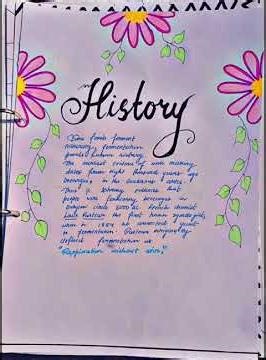 History
Since foods ferment
fermentation
human history.
The earliest evidence of wine making
dates from eight thousand years ago
in the caucasus area.
There is evidence that
people were fermenting beverages in
babylon circa 3000 BC. French chemist
Louis Pasteur the first known zymologist,
when in 1854 he connected yeast
to fermentation. Pasteur originally
defined fermentation as
"Respiration without air".